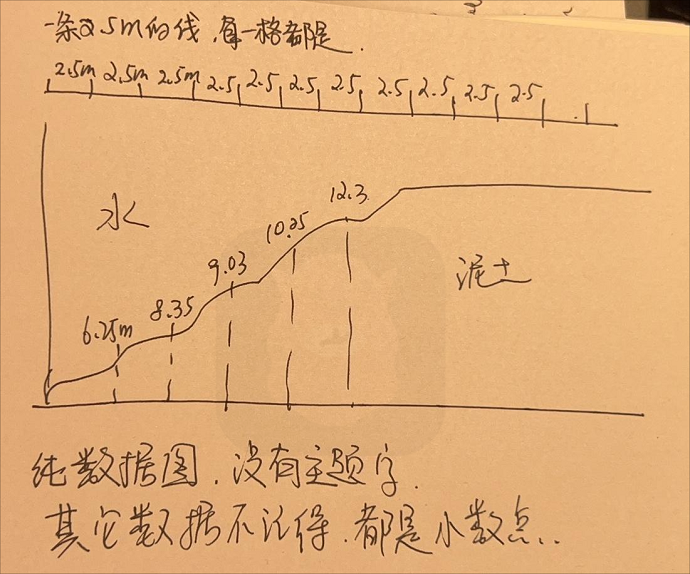 一条2.5m的线,每一格都是.
2.5m 2.5m 2.5m 2.5 2.5 2.5 2.5 2.5 2.5 2.5 2.5
水
12.3
10.25
9.03
泥土
8.35
6.25m
纯数据图.没有主题字.
其它数据不记得.都是小数点..